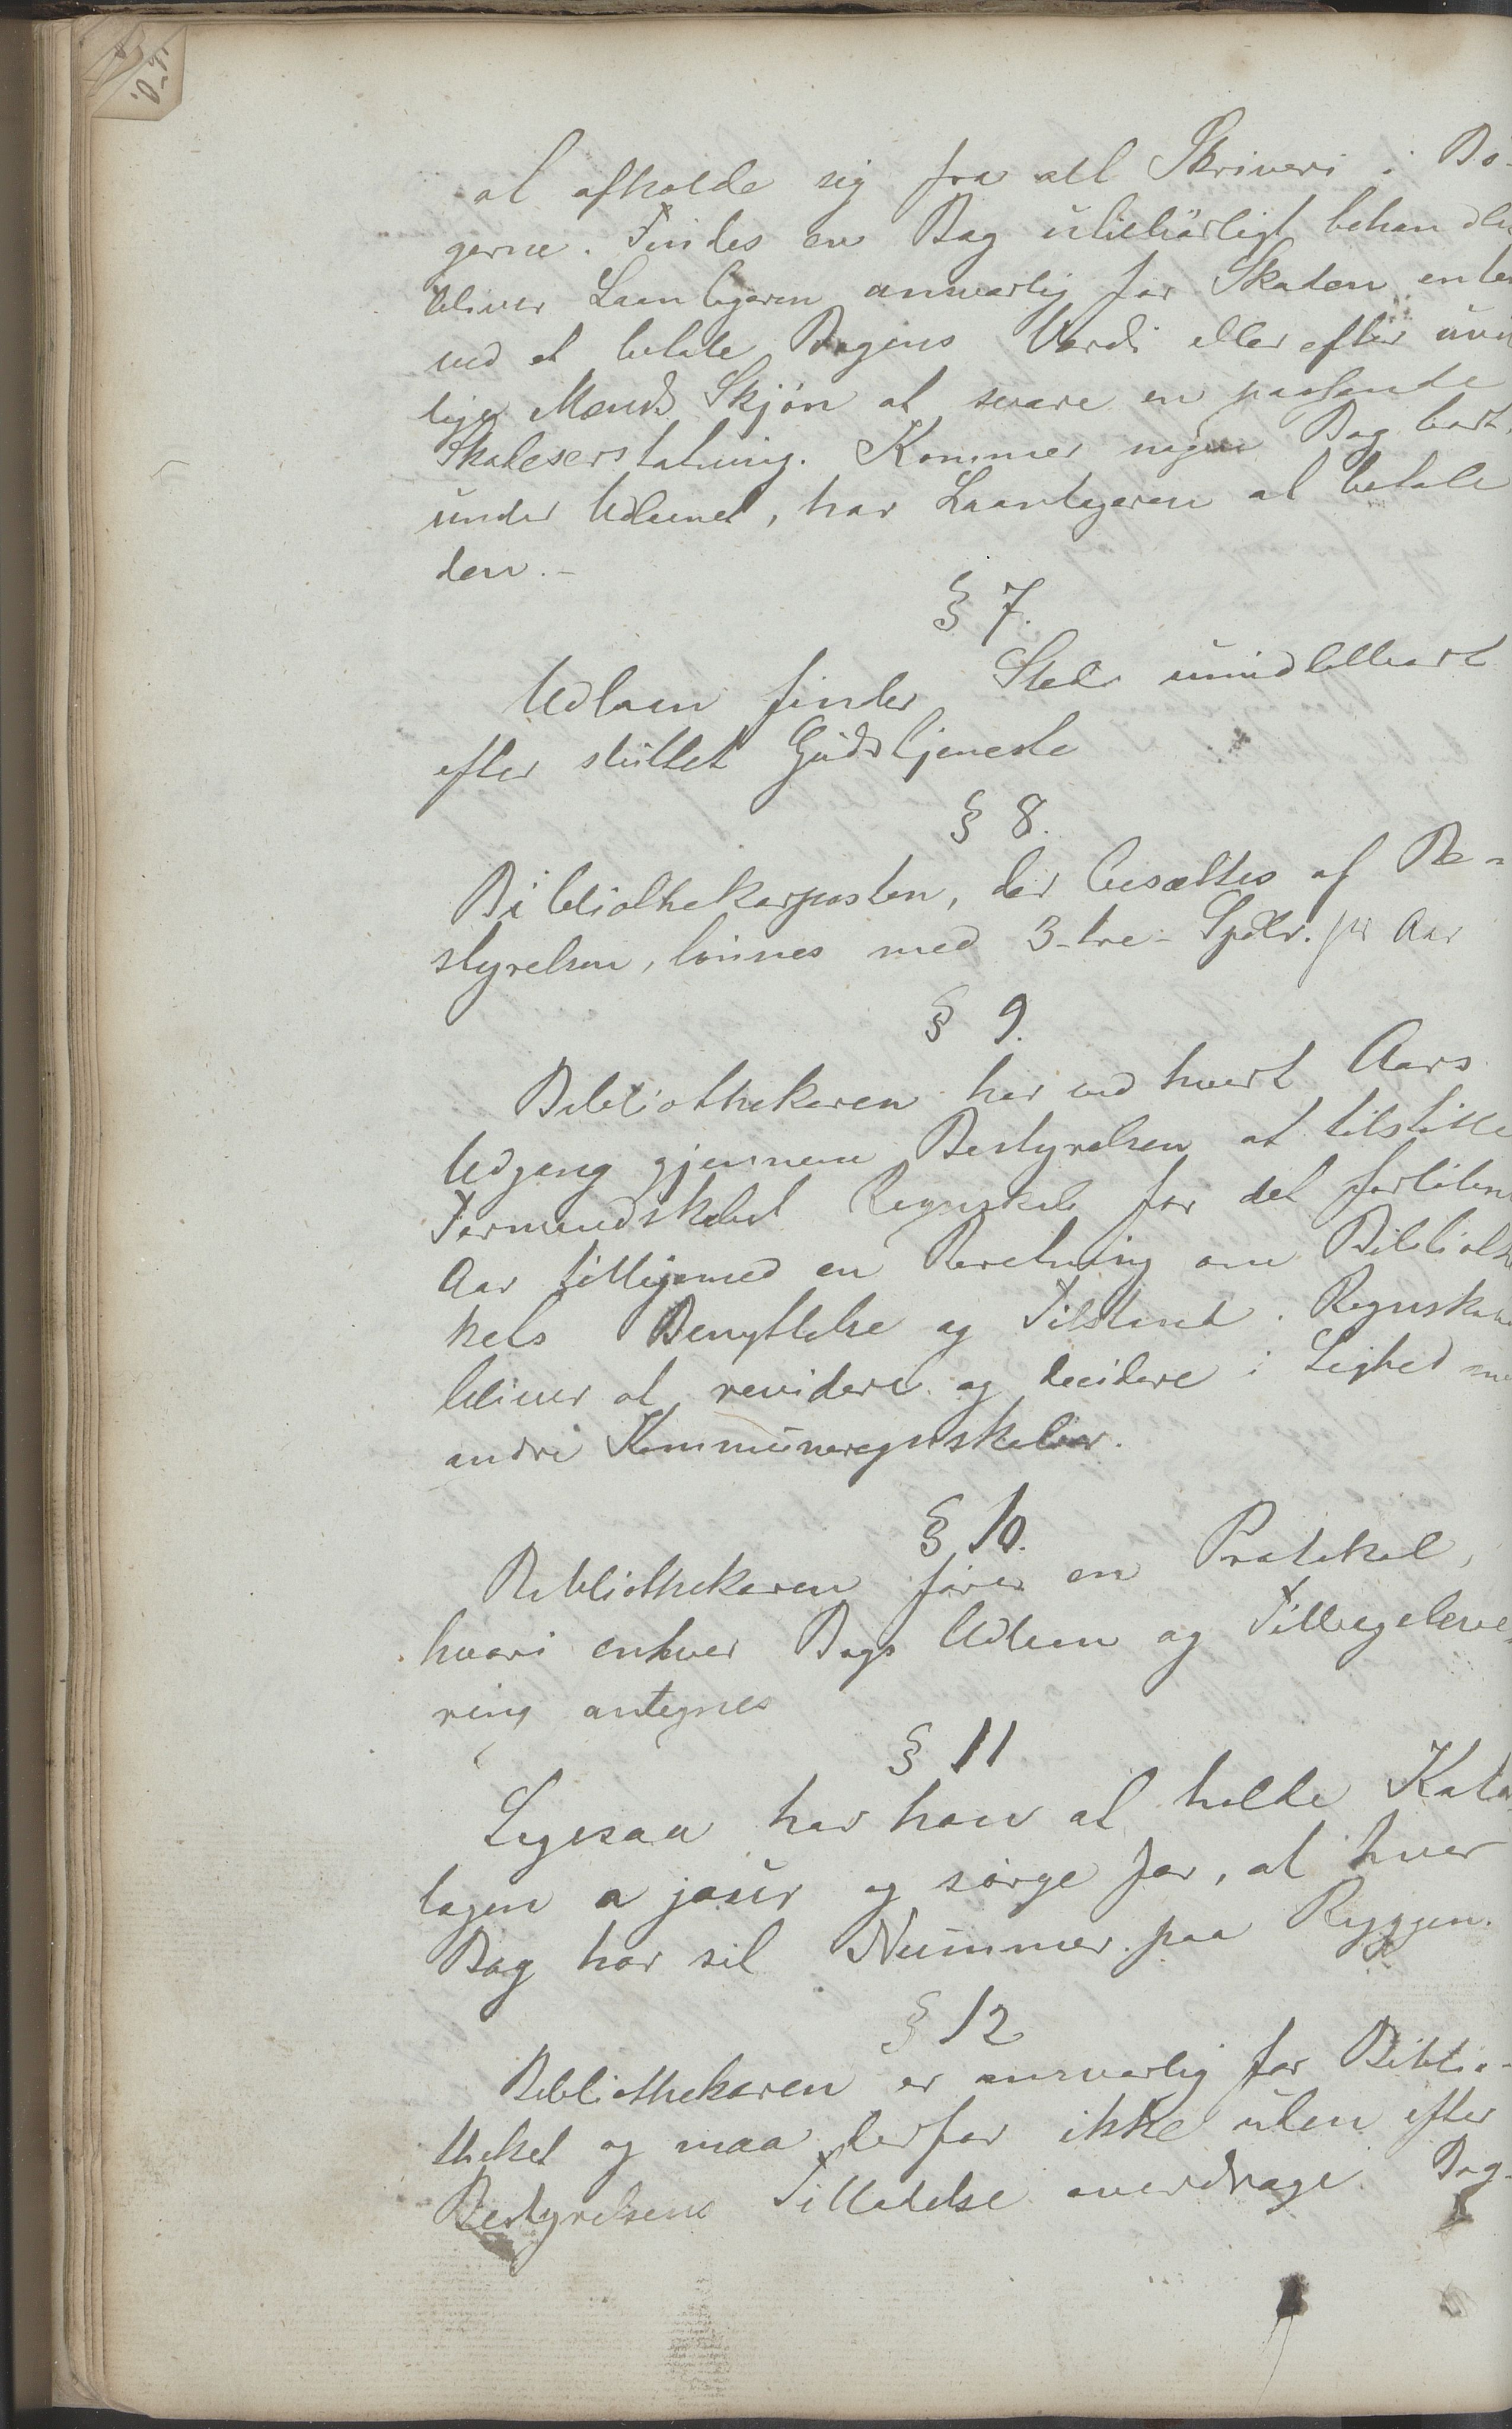 at afholde sig fra alt Skriveri i Bø-
gerne. Findes en Bog utilbørligt behandlet
bliver Laantageren ansvarlig for Skaden enten
ved at betale Bogens Værdi eller efter uvil
lige Mænds Skjøn at svare en passende
Skadeserstatning. Kommer nogen Bog bort
under Udlaanet, har Laantageren at betale
den.-
§ 7.
Udlaan finder Sted umiddelbart
efter sluttet Gudstjeneste
§ 8.
Bibliothekarposten, der besættes af Be-
styrelsen, lønnes med 3-tre- Spdlr. pr Aar
§ 9.
Bibliothekaren har ved hvert Aars
Udgang gjennem Bestyrelsen at tilstille
Formandskabet Regnskab for det forløbne
Aar tilligemed en Beretning om Bibliothe
kets Benyttelse og Tilstand. Regnskabet
bliver at revidere og decidere i Lighed med
andre Kommuneregnskaber.
§ 10.
Bibliothekaren fører en Protokol,
hvori enhver Bogs Udlaan og Tilbageleve-
ring antegnes
§ 11
Ligesaa har han at holde Kata
logen a jour og sørge for, at hver
Bog har sit Nummer paa Ryggen.
§ 12
Bibliothekaren er ansvarlig for Biblio-
theket og maa derfor ikke uden efter
Bestyrelsens Tilladelse overdrage Bog-